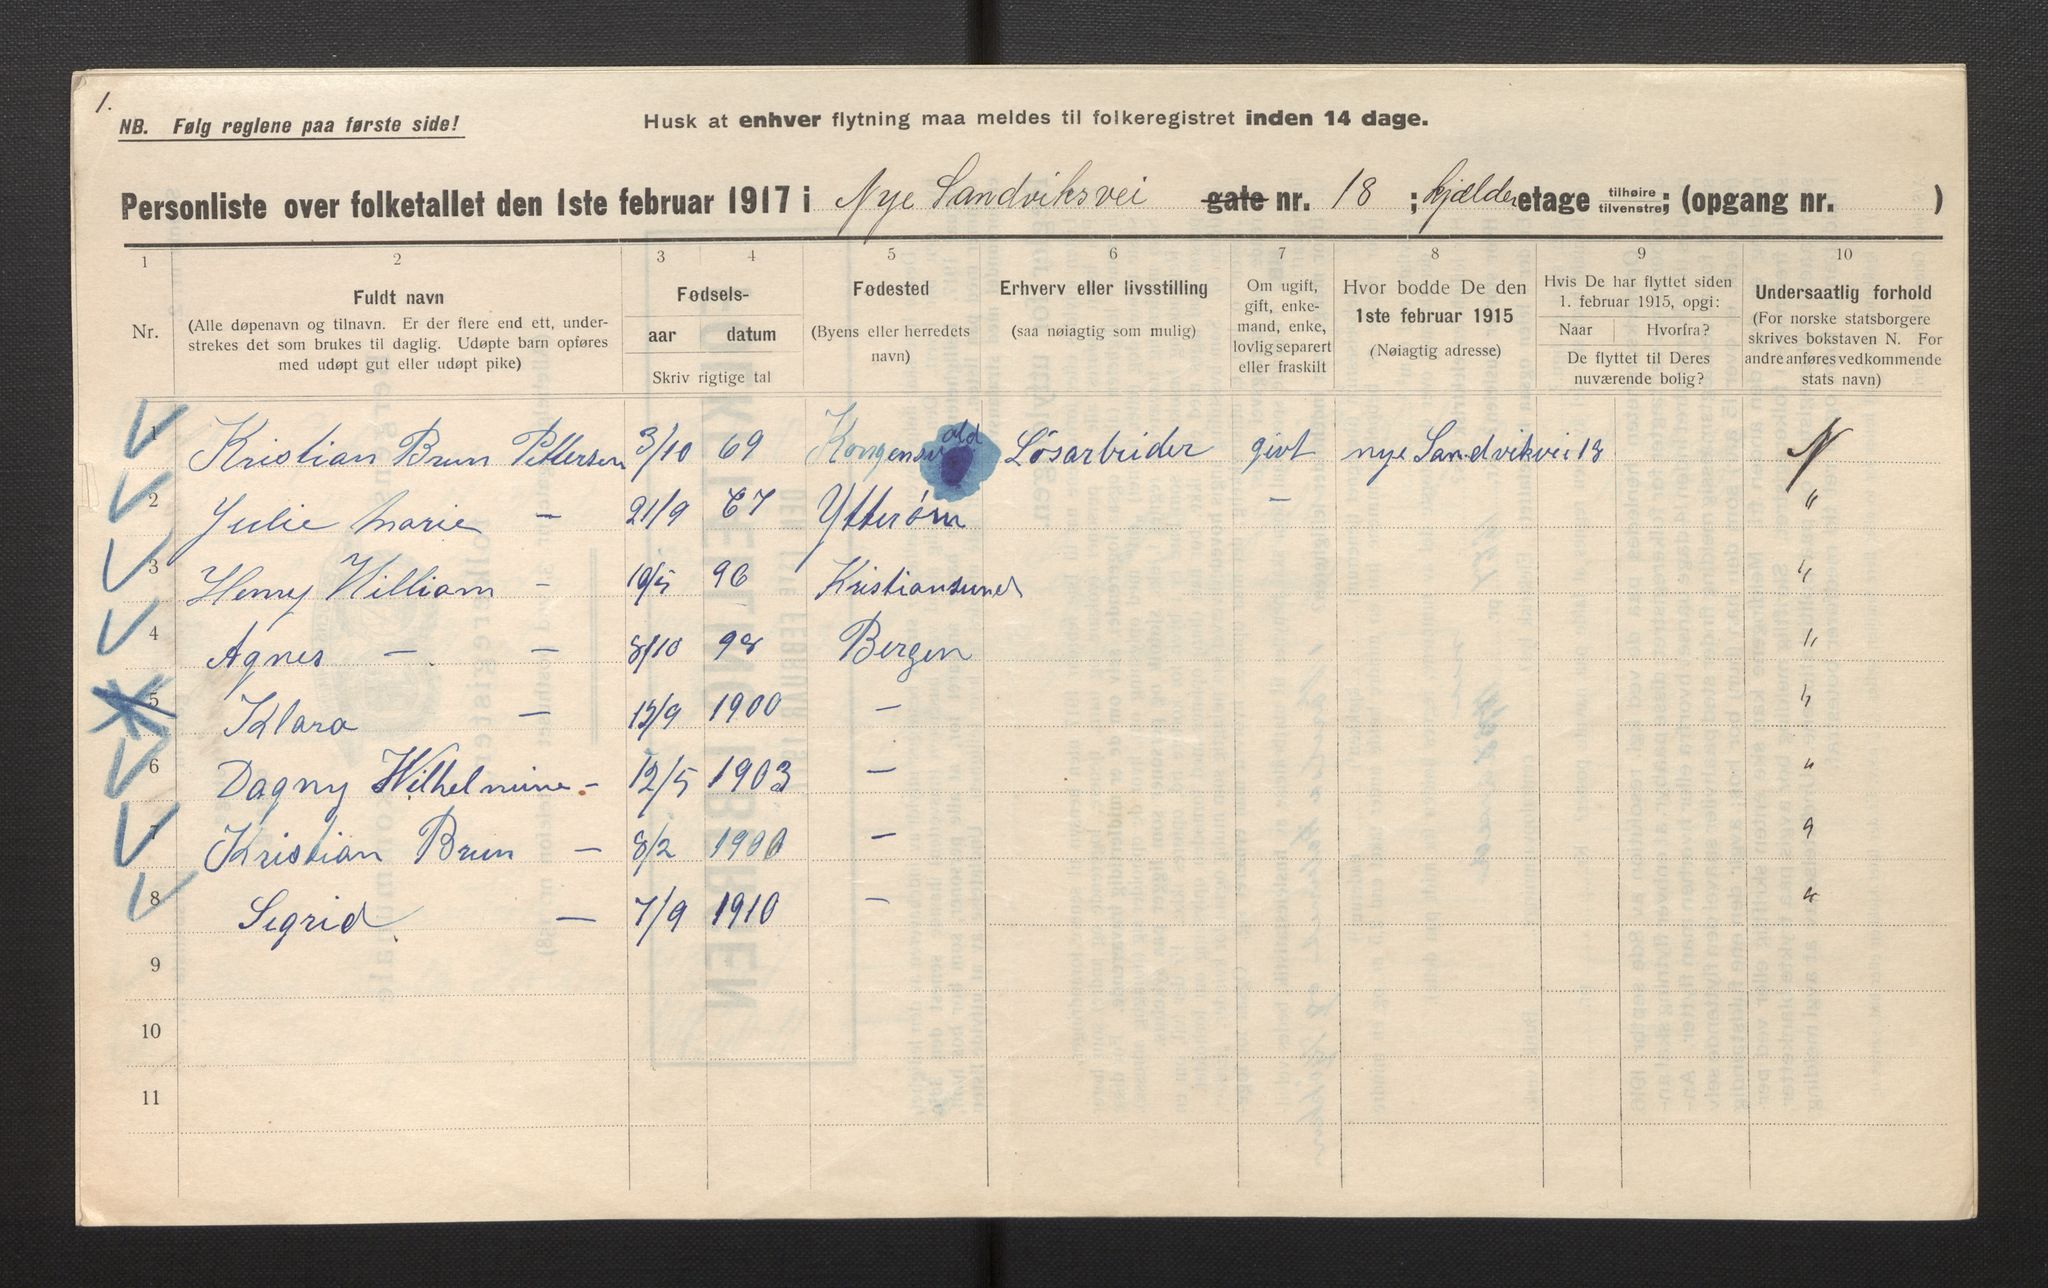 1.
NB. Følg reglene paa første side!
Husk at enhver flytning maa meldes til folkeregistret inden 14 dage.
Personliste over folketallet den 1ste februar 1917 i Nye Sandviksvei gate nr. 18 ; kjælder etage tilhøire tilvenstre; (opgang nr. )
1 2 3 4 5 6 7 8 9 10
Nr.
Fuldt navn
(Alle døpenavn og tilnavn. Er der flere end ett, under-
strekes det som brukes til daglig. Udøpte barn opføres
med udøpt gut eller udøpt pike)
Fødsels-
aar datum
Skriv rigtige tal
Fødested
(Byens eller herredets
navn)
Erhverv eller livsstilling
(saa nøiagtig som mulig)
Om ugift,
gift, enke-
mand, enke,
lovlig separert
eller fraskilt
Hvor bodde De den
1ste februar 1915
(Nøiagtig adresse)
Hvis De har flyttet siden
1. februar 1915, opgi:
Naar Hvorfra?
De flyttet til Deres
nuværende bolig?
Undersaatlig forhold
(For norske statsborgere
skrives bokstaven N. For
andre anføres vedkommende
stats navn)
1 Kristian Brun Pettersen 3/10 69 Kongensvold Løsarbeider givt nye Sandvikvei 18 N
2 Julie Marie — 21/9 67 Ytterøen — "
3 Henry William - 19/5 96 Kristiansund "
4 Agnes — — 8/10 98 Bergen "
5 Klara — 12/9 1900 — "
6 Dagny Wilhelmine - 12/5 1903 — "
7 Kristian Brun — 8/2 190 — "
8 Sigrid — 7/9 1910 — "
9
10
11